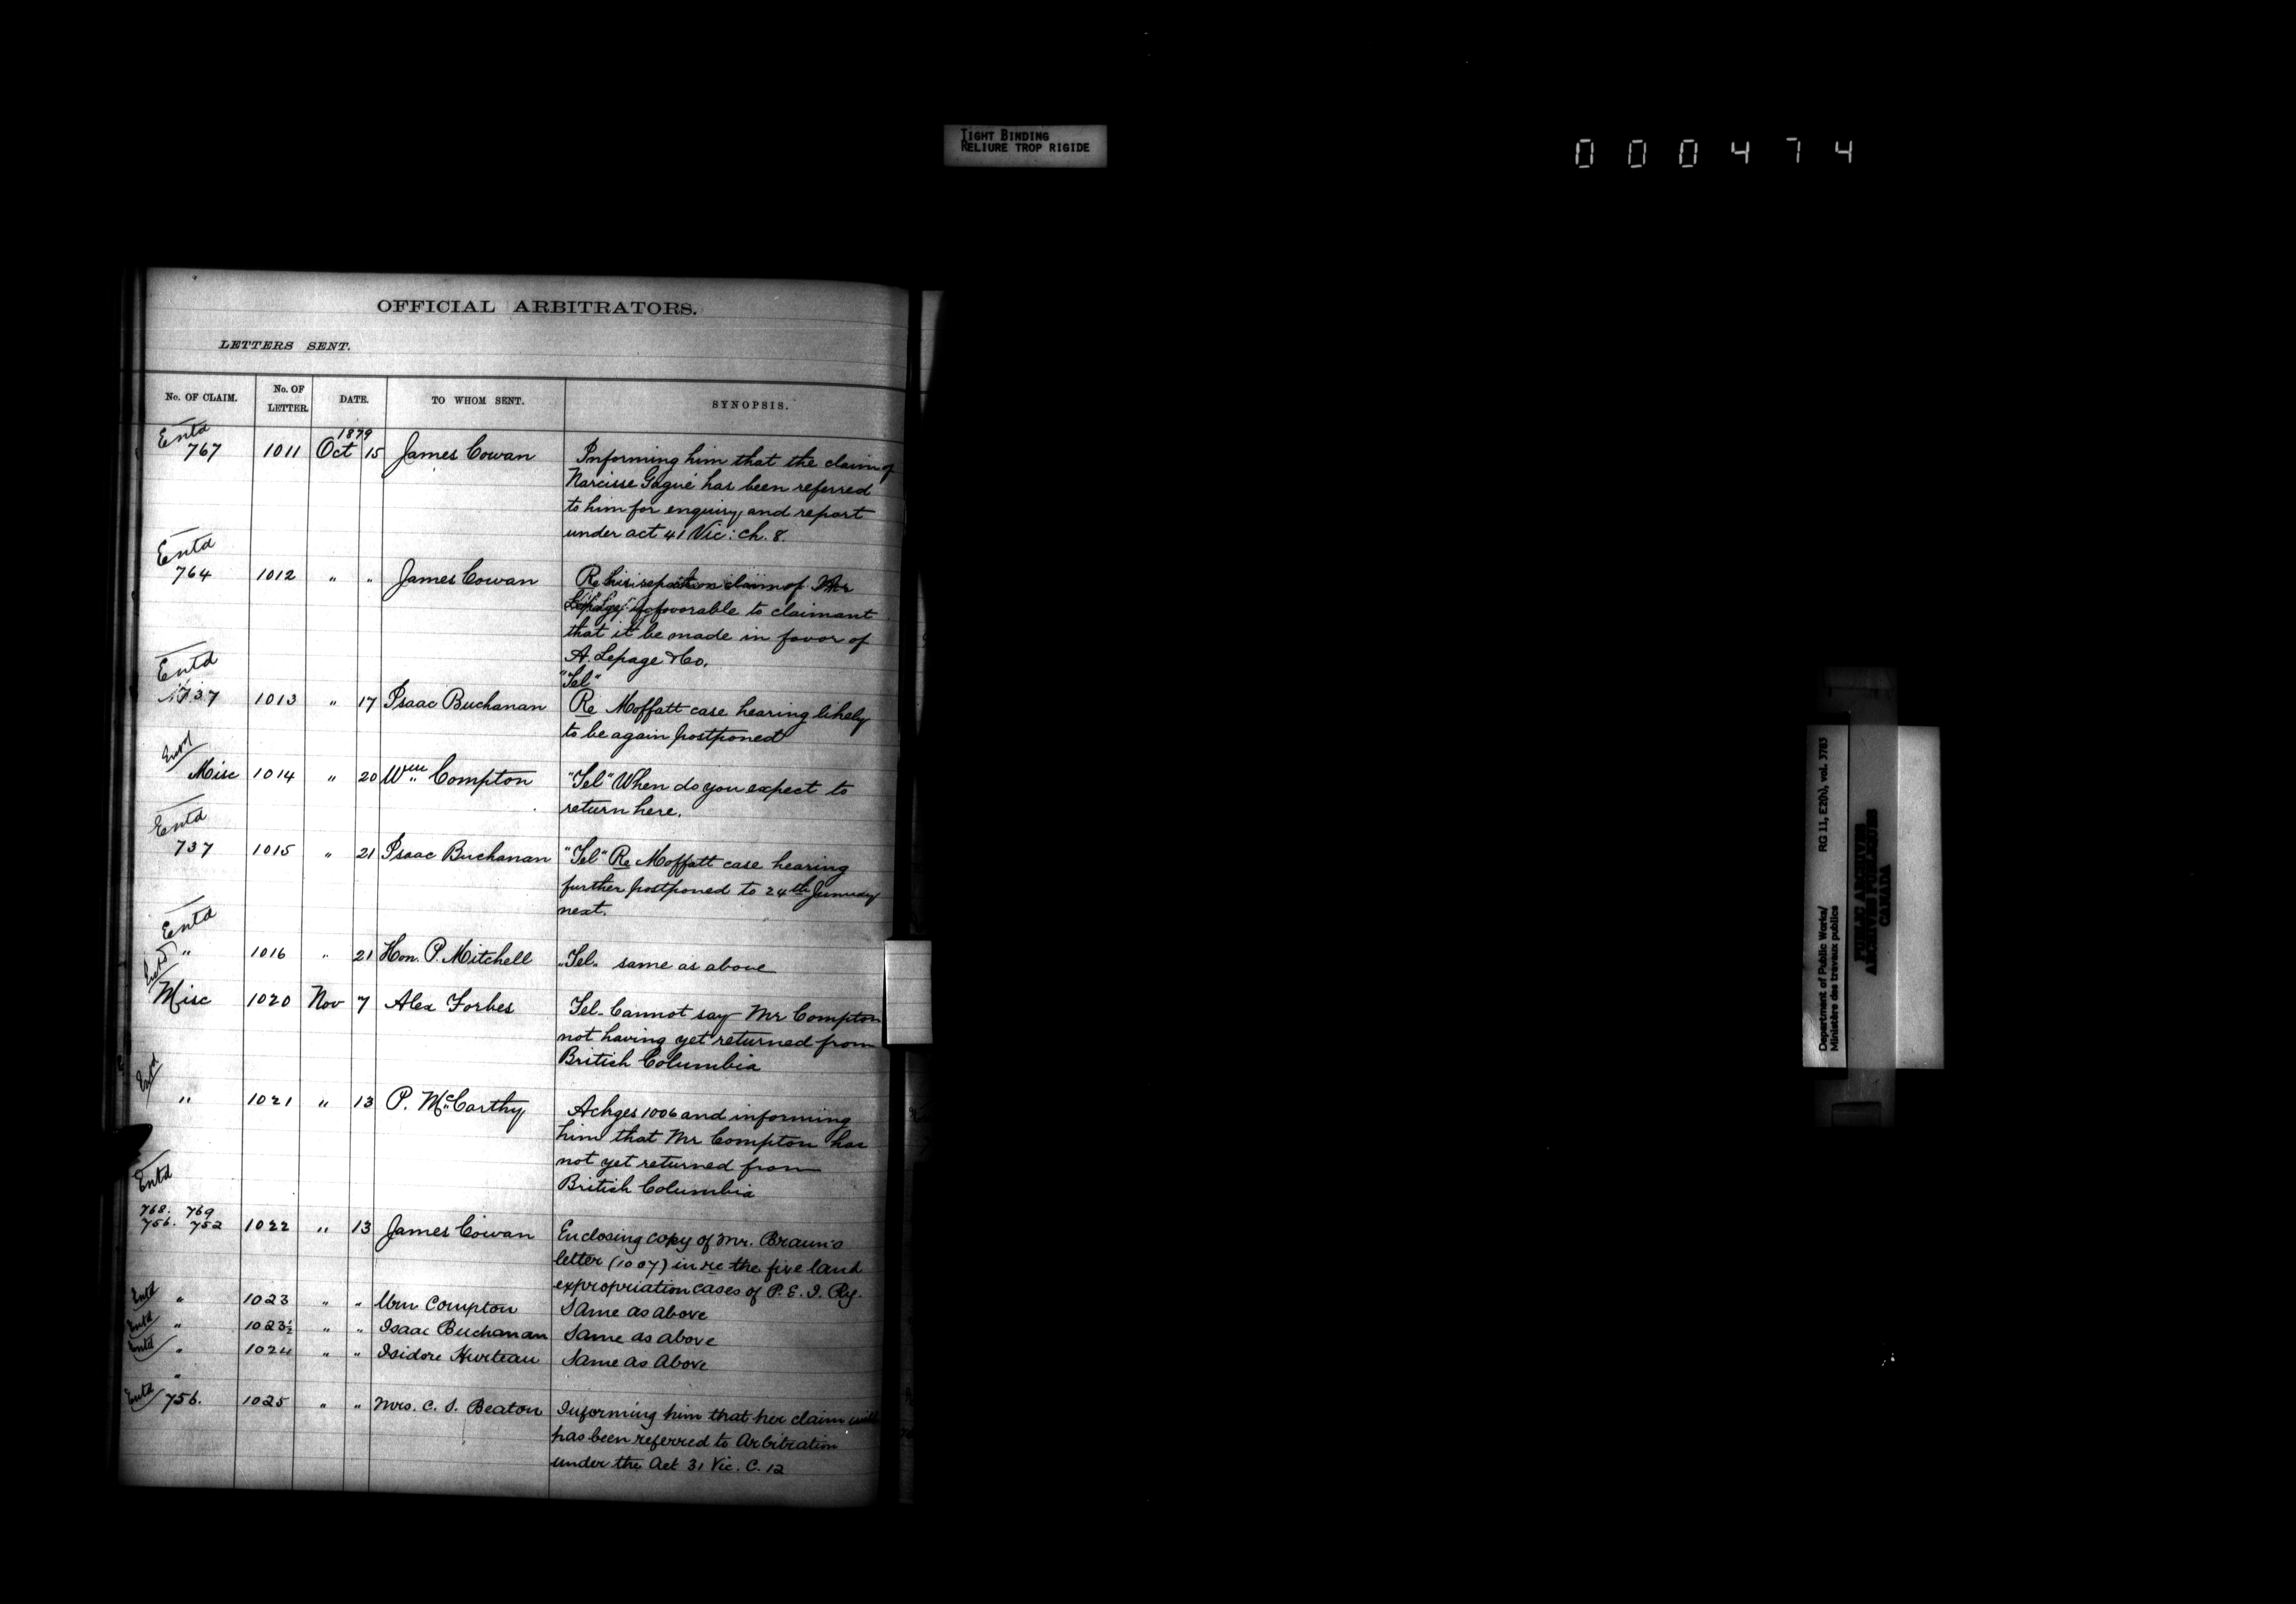 TIGHT BINDING
RELIURE TROP RIGIDE
000474
OFFICIAL ARBITRATORS.
LETTERS SENT.
No. OF CLAIM. No. OF LETTER. DATE. TO WHOM SENT. SYNOPSIS.
Entd 1879
767 1011 Oct 15 James Cowan Informing him that the claim of
Narcisse Gagné has been referred
to him for enquiry and report
under act 41 Vic: ch. 8.
Entd
764 1012 " " James Cowan Re his report on claim of Mr
Lepage favorable to claimant
that it be made in favor of
A. Lepage & Co.
Entd "Tel"
737 1013 " 17 Isaac Buchanan Re Moffatt case hearing likely
to be again postponed
Entd
Misc 1014 " 20 Wm Compton "Tel" When do you expect to
return here.
Entd
737 1015 " 21 Isaac Buchanan "Tel" Re Moffatt case hearing
further postponed to 24th January
next.
Entd
" 1016 " 21 Hon. P. Mitchell "Tel" same as above
Entd
Misc 1020 Nov 7 Alex Forbes Tel. Cannot say Mr Compton
not having yet returned from
British Columbia
Entd
" 1021 " 13 P. McCarthy Ackges 1006 and informing
him that Mr Compton has
not yet returned from
British Columbia
Entd
768. 769
756. 752 1022 " 13 James Cowan Enclosing copy of Mr. Braun's
letter (1007) in re the five land
expropriation cases of P. E. I. Ry.
Entd " 1023 " " Wm Compton Same as above
Entd " 1023½ " " Isaac Buchanan Same as above
Entd " 1024 " " Isidore Hurteau Same as Above
"
Entd 756. 1025 " " Mrs. C. S. Beaton Informing him that her claim
has been referred to Arbitration
under the Act 31 Vic. C. 12
Department of Public Works/
Ministère des travaux publics
RG 11, E2(h), vol. 3783
PUBLIC ARCHIVES
ARCHIVES PUBLIQUES
CANADA